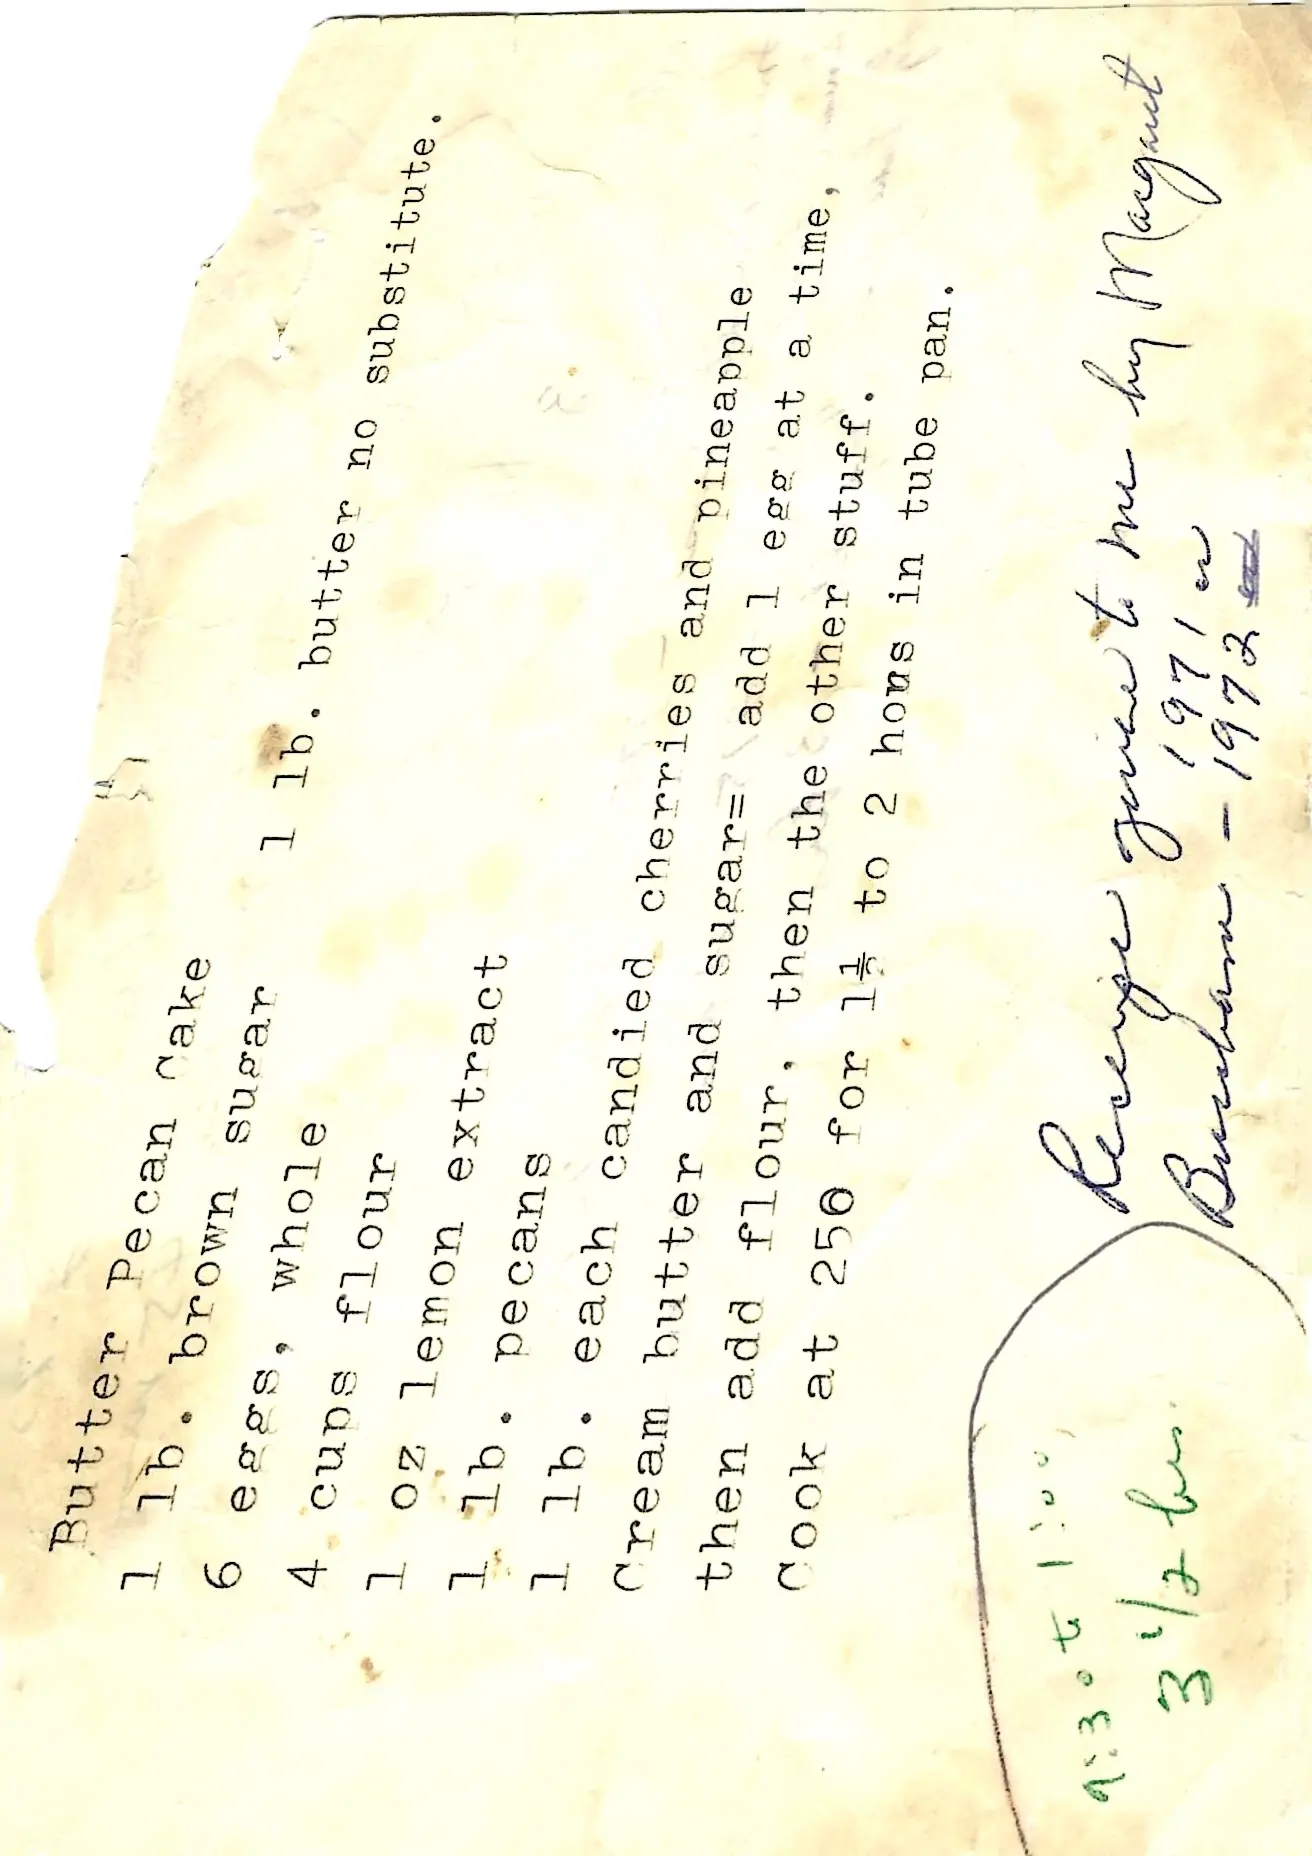 Butter Pecan Cake
1 lb. brown sugar
6 eggs, whole    1 lb. butter no substitute.
4 cups flour
1 oz lemon extract
1 lb. pecans
1 lb. each candied cherries and pineapple
Cream butter and sugar= add 1 egg at a time,
then add flour, then the other stuff.
Cook at 250 for 1½ to 2 hous in tube pan.
Receipe given to me by Margaret
Burnham - 1971 or
1972
9:30 to 1:00
3 1/2 hrs.